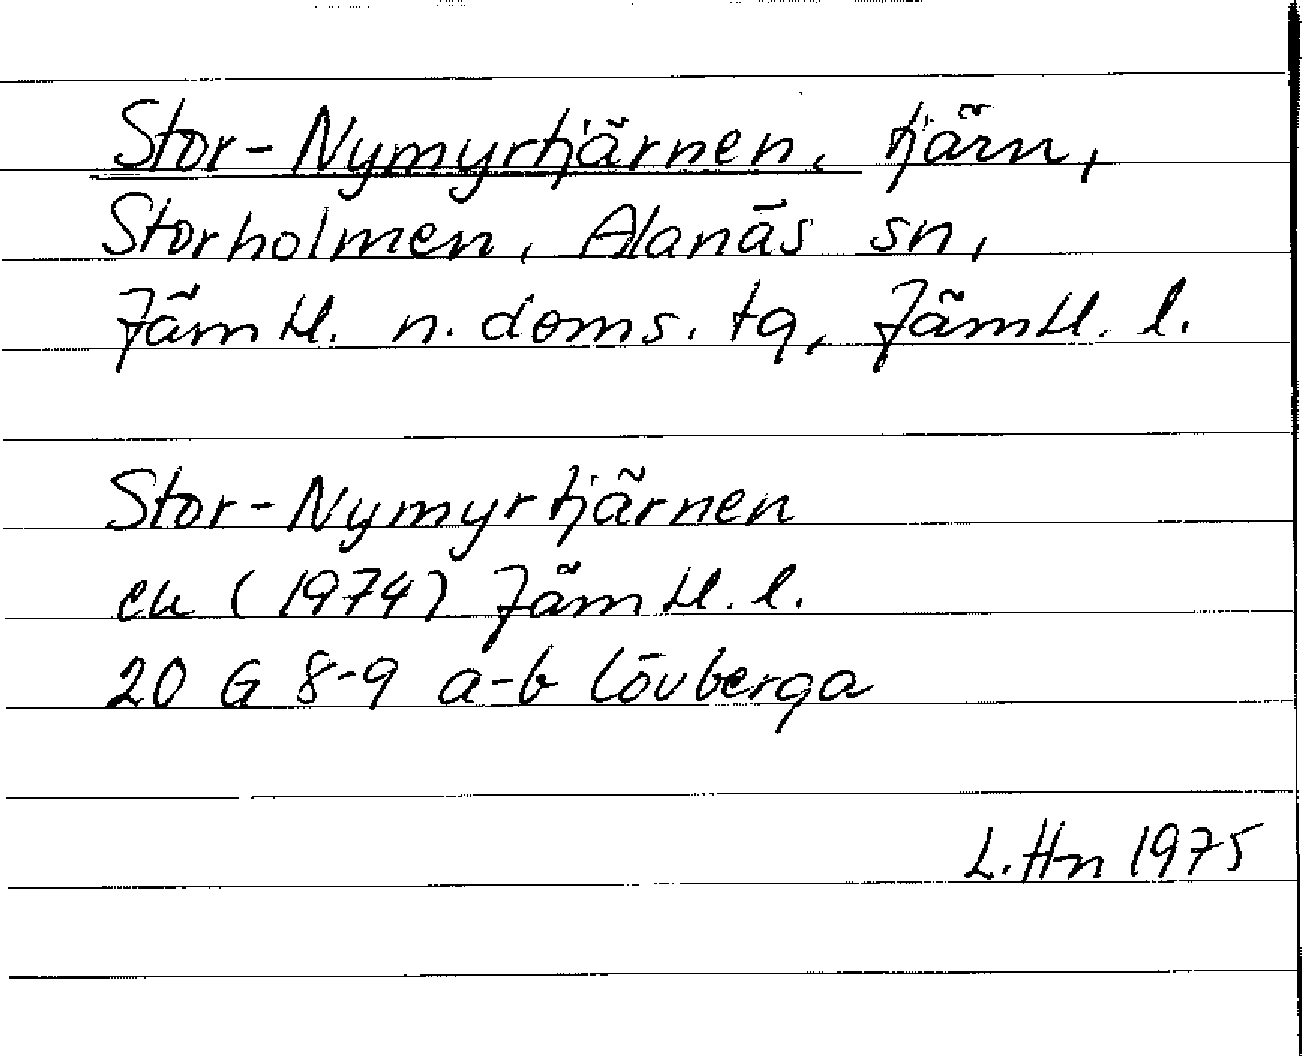 Stor-Nymyrtjärnen, tjärn,
Storholmen, Alanäs sn,
Jämtl. n. doms. tg, Jämtl. l.
Stor-Nymyrtjärnen
ek (1974) Jämtl. l.
20 G 8-9 a-b Lövberga
L. Hn 1975